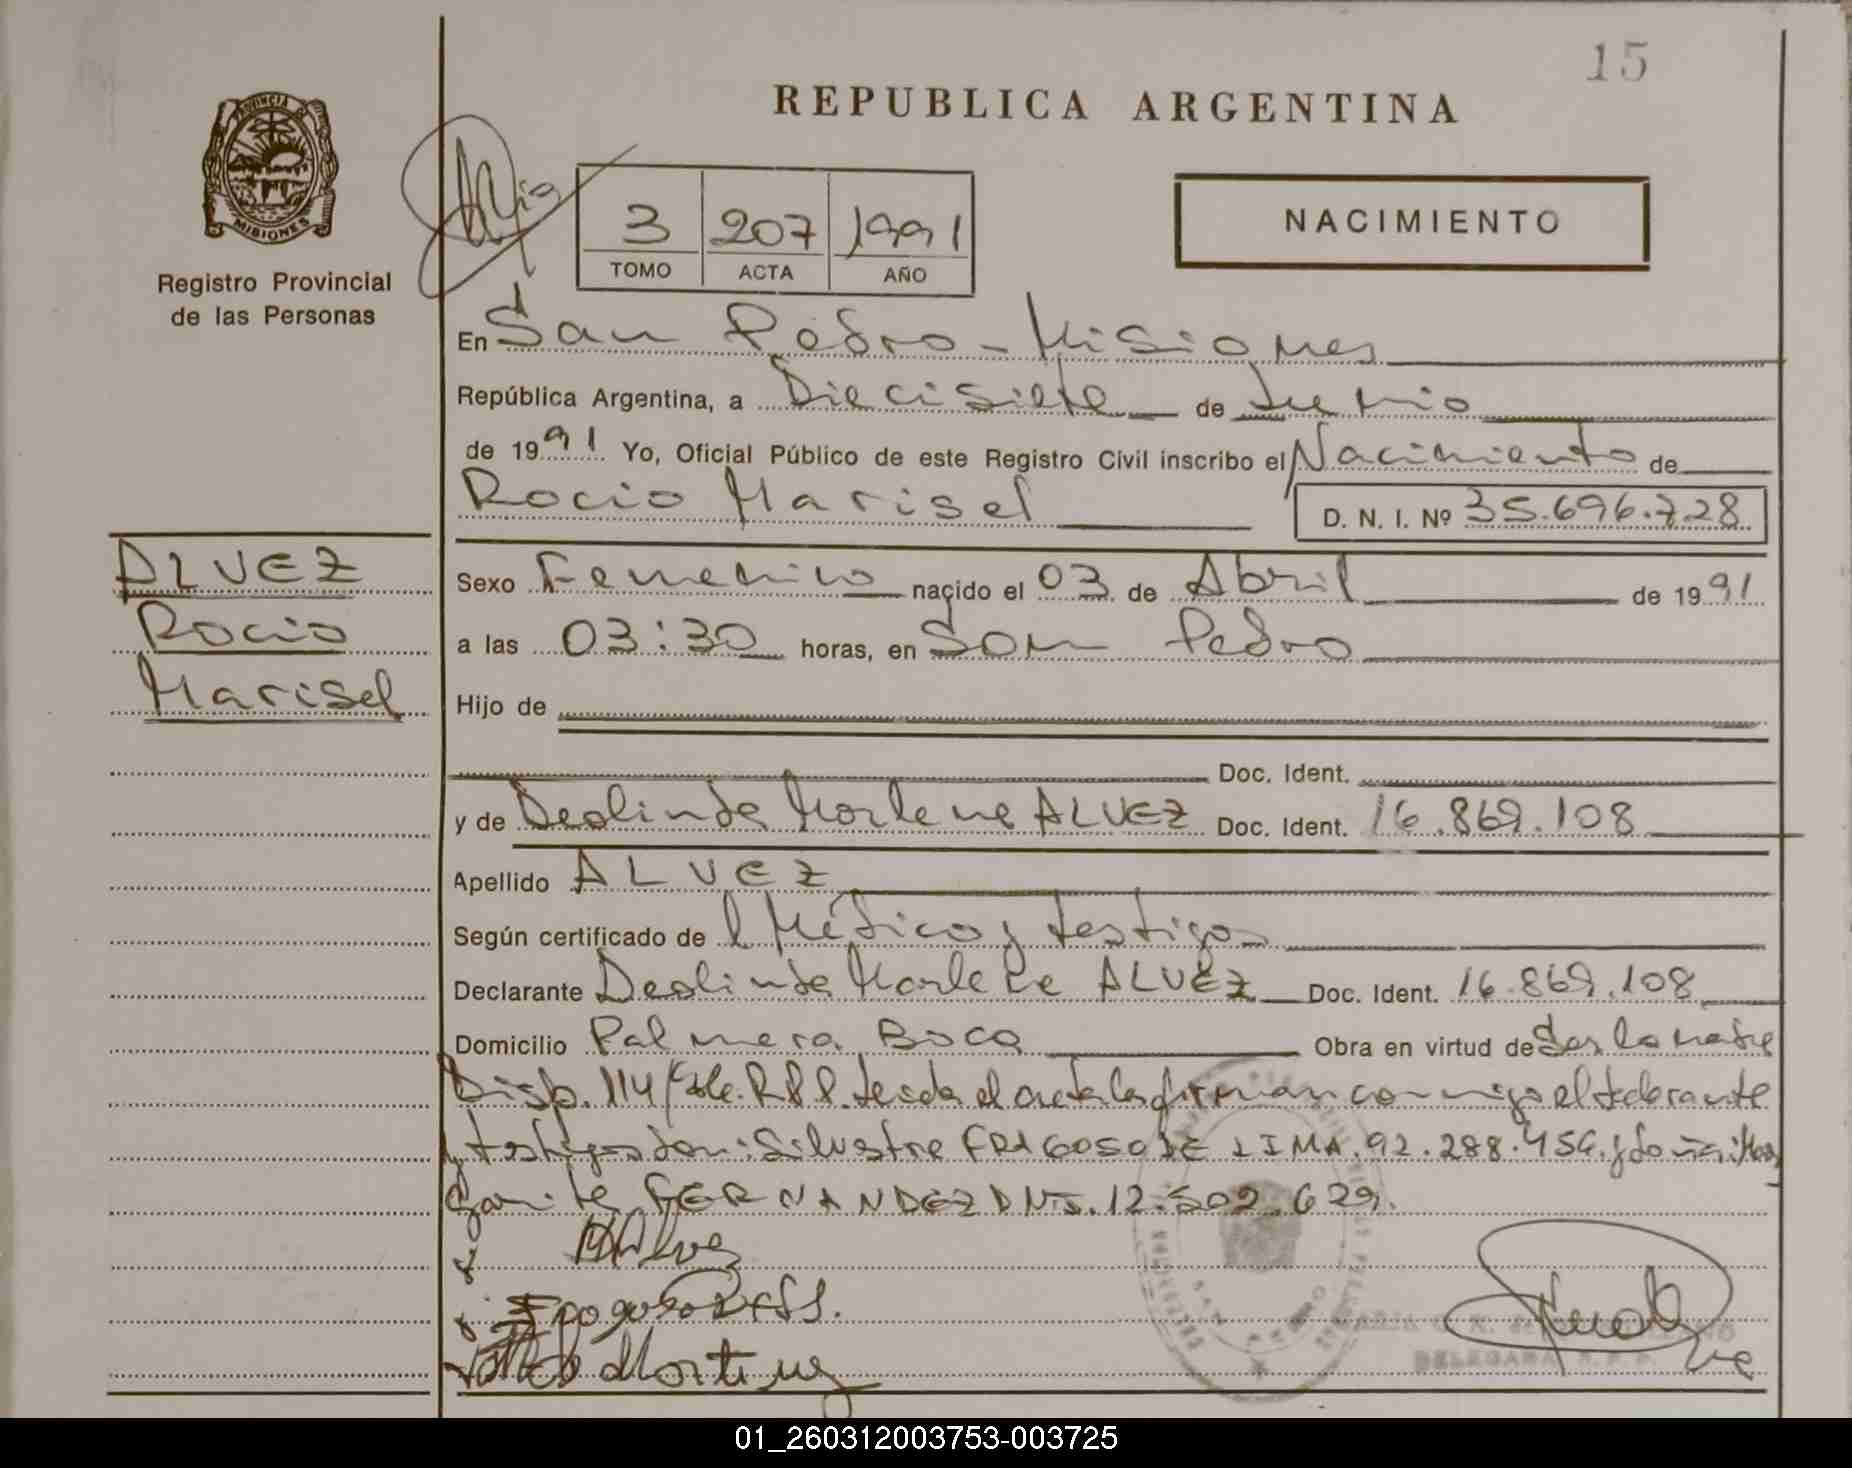 15
REPUBLICA ARGENTINA
PROVINCIA
MISIONES
Registro Provincial
de las Personas
3 207 1991
TOMO ACTA AÑO
NACIMIENTO
En San Pedro - Misiones
República Argentina, a Diecisiete de Junio
de 1991 Yo, Oficial Público de este Registro Civil inscribo el Nacimiento de
Rocio Marisel D. N. I. Nº 35.696.728
ALVEZ
Rocio
Marisel
Sexo Femenino nacido el 03 de Abril de 1991
a las 03:30 horas, en San Pedro
Hijo de
Doc. Ident.
y de Deolinda Marlene ALVEZ Doc. Ident. 16.869.108
Apellido ALVEZ
Según certificado de l Médico y testigos
Declarante Deolinda Marlene ALVEZ Doc. Ident. 16.869.108
Domicilio Palmera Boca Obra en virtud de Ser la madre
Disp. 114/ R.P.P. leida el acta la firman conmigo el declarante
y testigos don: Silvestre FRAGOSO DE LIMA. 92.288.456. y doña: Mar
garita FERNANDEZ DNI. 12.502.629.
Alvez
DELEGADA R. P. P.
01_260312003753-003725